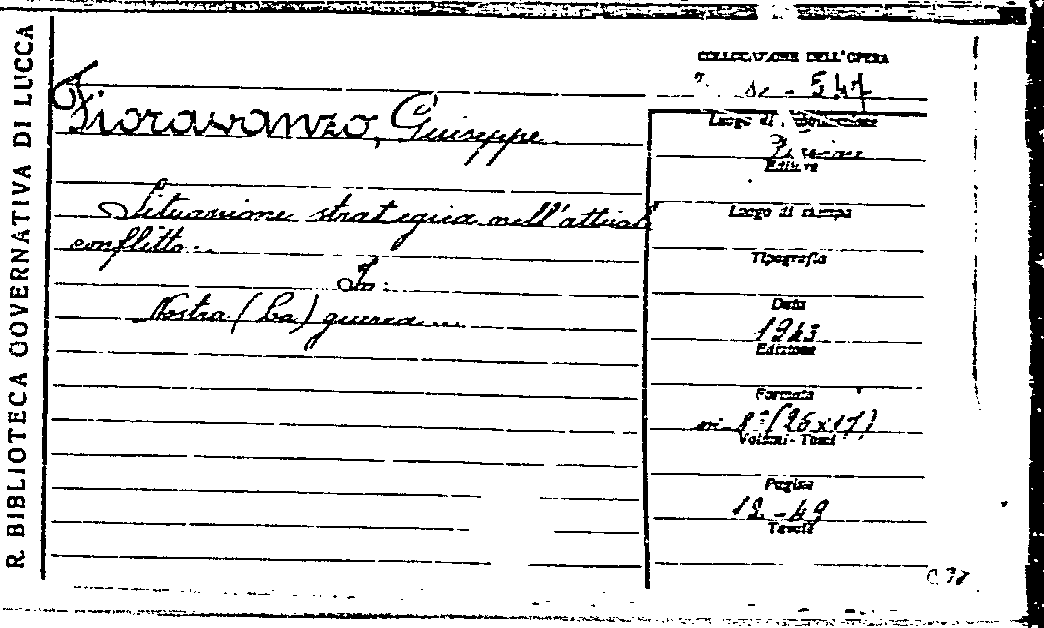 R. BIBLIOTECA GOVERNATIVA DI LUCCA
COLLOCAZIONE DELL'OPERA
547
Fioravanzo, Giuseppe
Luogo di pubblicazione
Firenze
Editore
Situazione strategica nell'attuale
conflitto...
Luogo di stampa
Tipografia
In:
Nostra (La) guerra...
Data
1943
Edizione
Formato
in-8° (25x17)
Volumi - Tomi
Pagine
19-49
Tavole